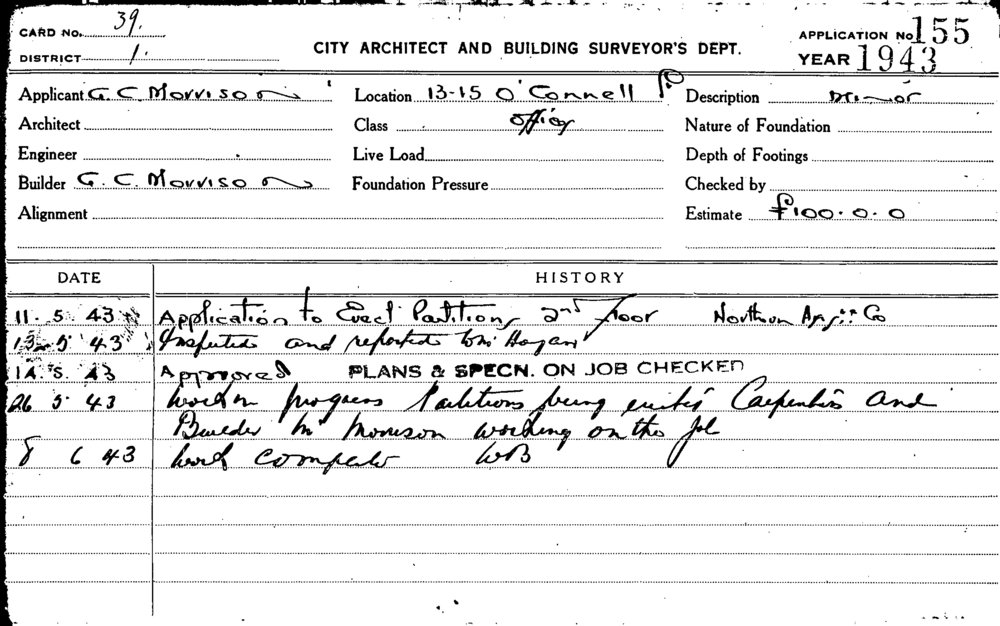 CARD No. 39.
DISTRICT 1.
CITY ARCHITECT AND BUILDING SURVEYOR'S DEPT.
APPLICATION No. 155
YEAR 1943
Applicant G. C. Morrison Location 13-15 O'Connell St Description minor
Architect Class Office Nature of Foundation
Engineer Live Load Depth of Footings
Builder G. C. Morrison Foundation Pressure Checked by
Alignment Estimate £100.0.0
DATE HISTORY
11 . 5 . 43 Application to Erect Partitions 2nd Floor Northern Co
13 . 5 . 43 Inspected and reported to Mr Hogan
14 . 5 . 43 Approved PLANS & SPECN. ON JOB CHECKED
26 5 . 43 Work in progress Partitions being erected Carpenters and
Builder Mr Morrison working on the Job
8 6 43 Work complete WB